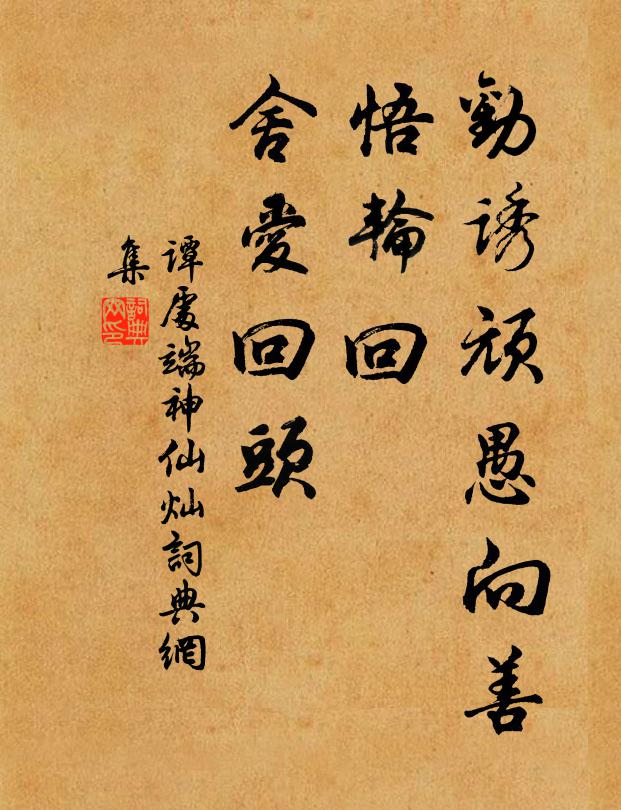 勸誘頑愚向善
悟輪回
舍愛回頭
譚處端神仙灿詞典網
集
詞典網印